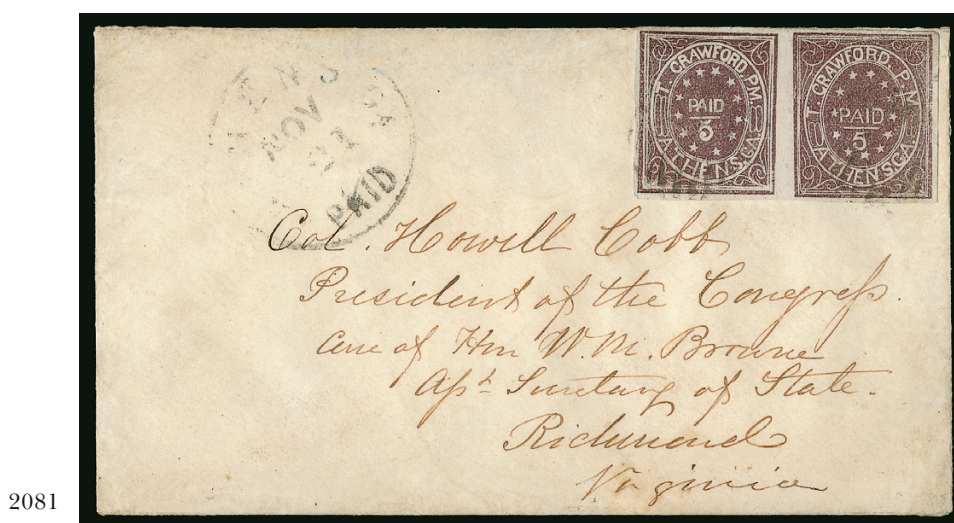 T. CRAWFORD, P.M.
PAID
5
ATHENS, GA.
T. CRAWFORD, P.M.
PAID
5
ATHENS, GA.
ENS GA
NOV
PAID
Col. Howell Cobb
President of the Congress.
Care of Hon W. M. Browne
Asst. Secretary of State.
Richmond
Virginia
2081